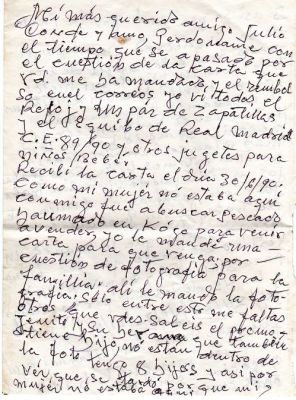 Mi más querido amigo Julio
Conde y amo, Perdoname con
el tiempo que se a pasado por
el cuestión de la Karta que
Vd me ha mandado, y el rembol
so en el correos, yo vi todos el
Reloj y un par de Zapatillas
y el equibo de Real madrid
C.F. 89/90 y otros jugetes para
niños/Bebé.
Recibi la carta el día 30/6/90.
como mi mujer nó estaba aquí
conmigo fué a buscar pescado
haumado en Kogo para venir
avender, yo le mandé una
carta para que venga por
cuestión de fotografia para la
familia; ali le mando la foto-
grafia; Solo entre esto me faltas
otros que vdes. sal eis el promo-
tiene y su hermana que también
la foto nó están dentro de
tengo 8 hijos y asi por
ver que se
mujer nó estaba aquí por que mi